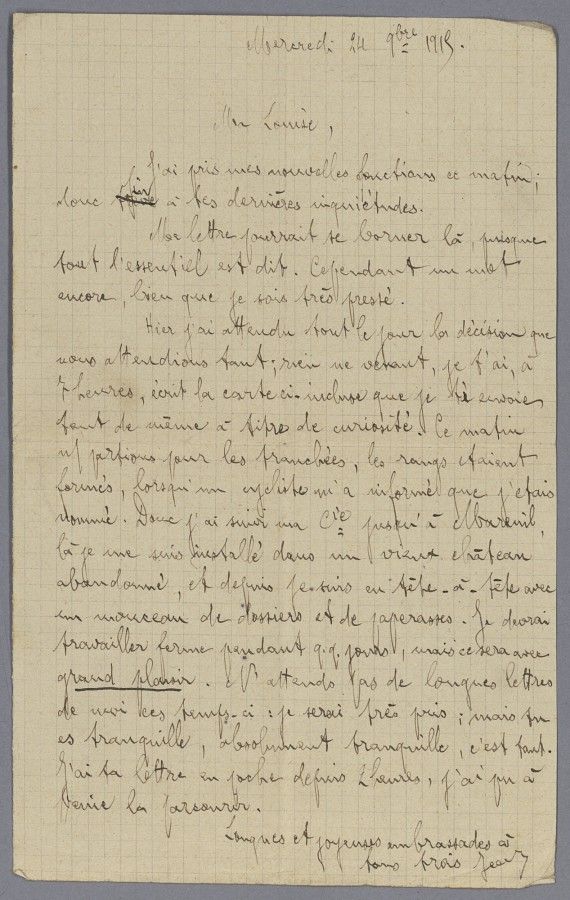 Mercredi 24 9bre 1915.
Ma Louise,
J'ai pris mes nouvelles fonctions ce matin ;
donc fin à tes dernières inquiétudes.
Ma lettre pourrait se borner là, puisque
tout l'essentiel est dit. Cependant un mot
encore, bien que je sois très pressé.
Hier j'ai attendu tout le jour la décision que
nous attendions tant ; rien ne venant, je t'ai, à
7 heures, écrit la carte ci-incluse que je t'envoie
tout de même à titre de curiosité. Ce matin
n/ partions pour les tranchées, les rangs étaient
formés, lorsqu'un cycliste m'a informé que j'étais
nommé. Donc j'ai suivi ma Cie jusqu'à Mareuil,
là je me suis installé dans un vieux château
abandonné, et depuis je suis en tête-à-tête avec
un monceau de dossiers et de paperasses. Je devrai
travailler ferme pendant q.q. jours, mais ce sera avec
grand plaisir. N'attends pas de longues lettres
de moi ces temps-ci : je serai très pris ; mais tu
es tranquille, absolument tranquille, c'est tout.
J'ai ta lettre en poche depuis 2 heures, j'ai pu à
peine la parcourir.
Longues et joyeuses embrassades à
tous trois Jean